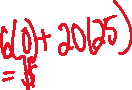 6(0) + 20(25)
=